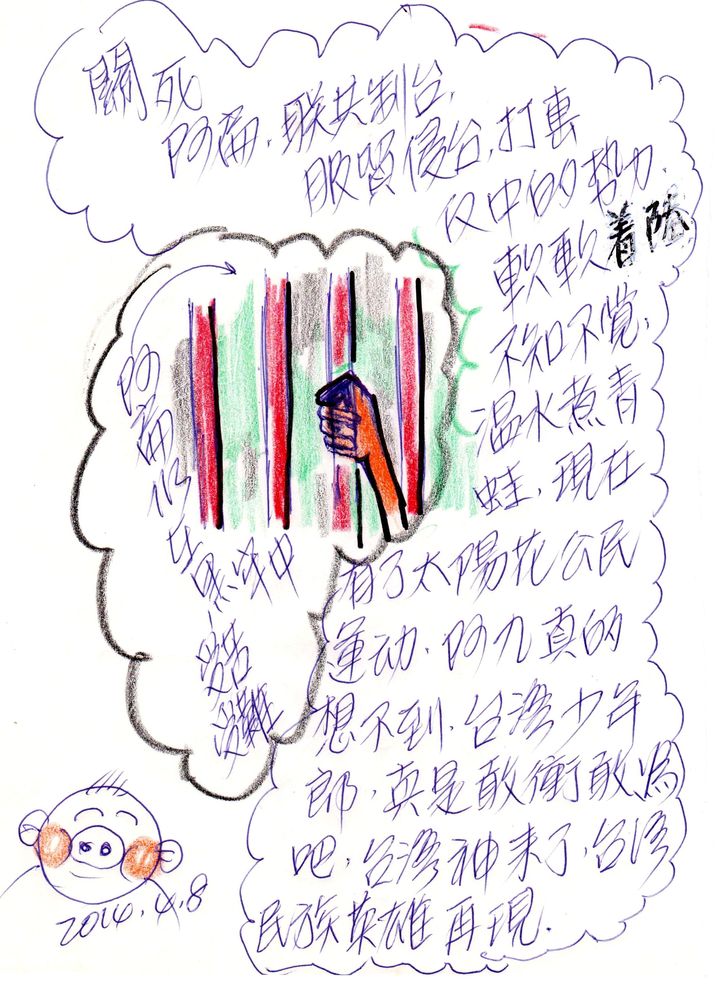 關死
阿扁,联共制台,
眼質侵台,打裏
反中的势力,
軟軟着陸
不知不覺,
温水煮青
蛙,現在
有了太陽花公民
運动,阿九真的
想不到,台湾少年
郎,真是敢衝敢為
吧,台湾神来了,台湾
民族英雄再現.
阿扁仍在黑牢中
受苦
受難
2014.4.8